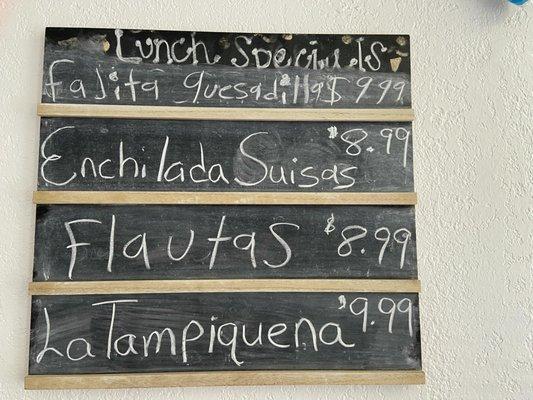 Lunch Specials
Fajita Quesadilla $ 9.99
Enchilada Suisas $8.99
Flautas $8.99
La Tampiquena $9.99